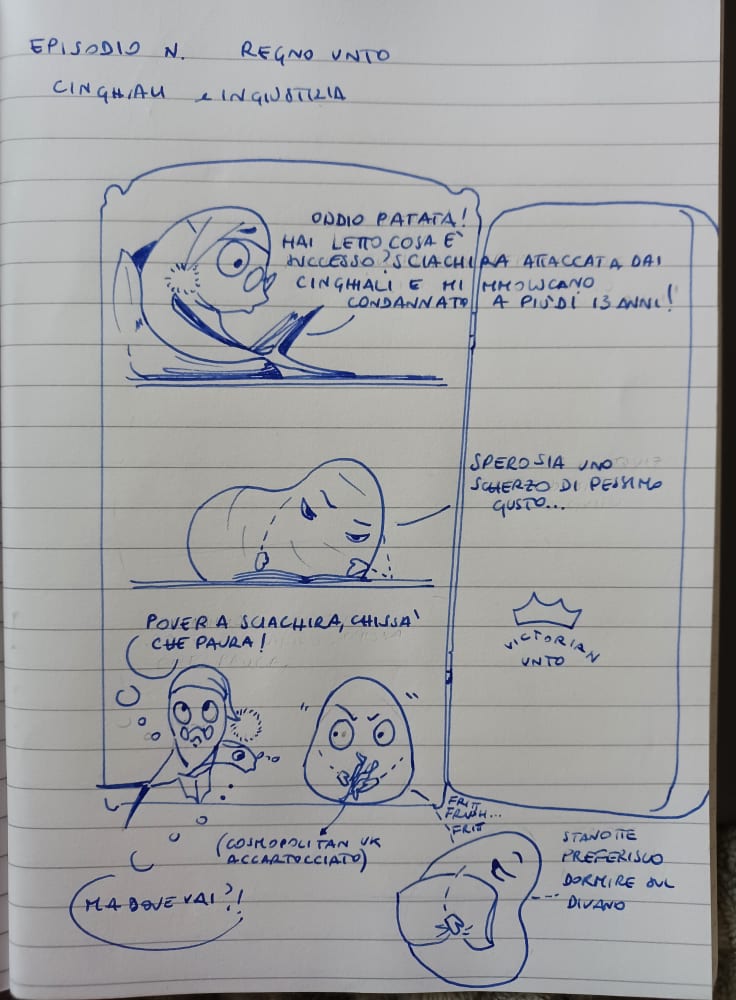 EPISODIO N. REGNO UNTO
CINGHIALI e INGIUSTIZIA
ODDIO PATATA!
HAI LETTO COSA È
SUCCESSO? SCIACHIRA ATTACCATA DAI
CINGHIALI E MIMMOLUCANO
CONDANNATO A PIÙ DI 13 ANNI!
SPERO SIA UNO
SCHERZO DI PESSIMO
GUSTO...
VICTORIAN
UNTO
POVERA SCIACHIRA, CHISSA'
CHE PAURA!
(COSMOPOLITAN UK
ACCARTOCCIATO)
MA DOVE VAI?!
FRIT
FRUSH...
FRIT
STANOTTE
PREFERISCO
DORMIRE SUL
DIVANO